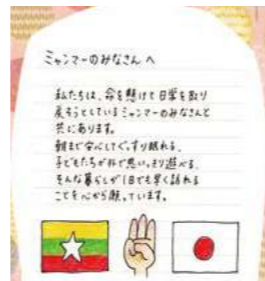 ミャンマーのみなさんへ
私たちは、命を懸けて日常を取り
戻そうとしているミャンマーのみなさんと
共にあります。
朝まで安心してぐっすり眠れる、
子どもたちが外で思いっきり遊べる、
そんな暮らしが1日でも早く訪れる
ことを心から願っています。